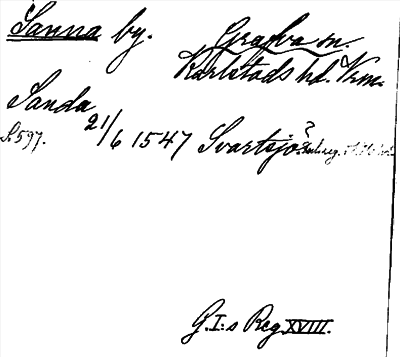 Sanna by.
Grafva sn.
Karlstads hd. Vrm.
Sanda
S. 597.
21/6 1547 Svartsjö?
G. I:s Reg XVIII.